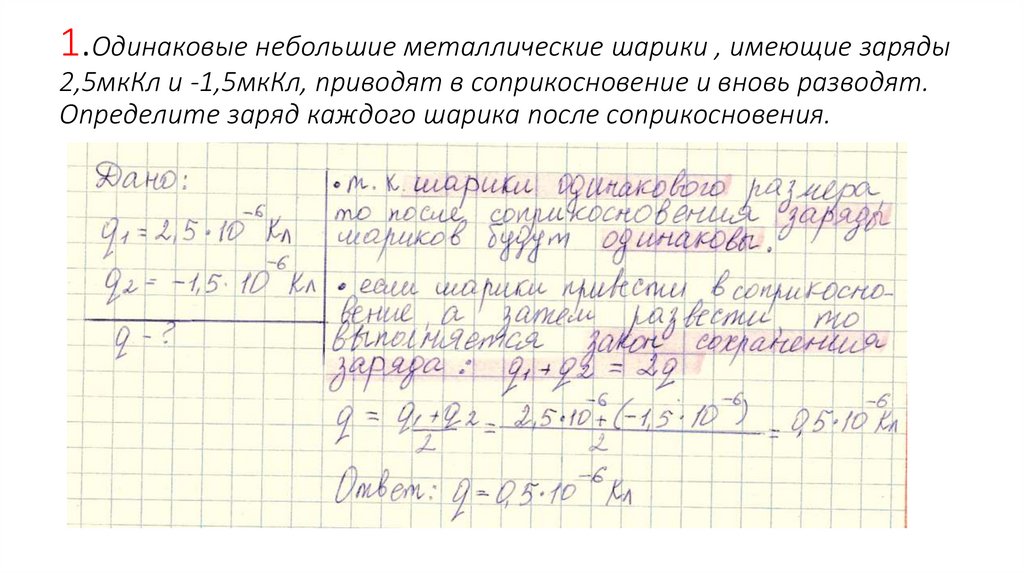 1.Одинаковые небольшие металлические шарики , имеющие заряды
2,5мкКл и -1,5мкКл, приводят в соприкосновение и вновь разводят.
Определите заряд каждого шарика после соприкосновения.
Дано:
q₁ = 2,5·10⁻⁶ Кл
q₂ = -1,5·10⁻⁶ Кл
q - ?
• т.к. шарики одинакового размера
то после соприкосновения заряды
шариков будут одинаковы.
• если шарики привести в соприкосно-
вение а затем развести, то
выполняется закон сохранения
заряда : q₁ + q₂ = 2q
q = q₁+q₂/2 = 2,5·10⁻⁶+(-1,5·10⁻⁶)/2 = 0,5·10⁻⁶ Кл
Ответ: q = 0,5·10⁻⁶ Кл